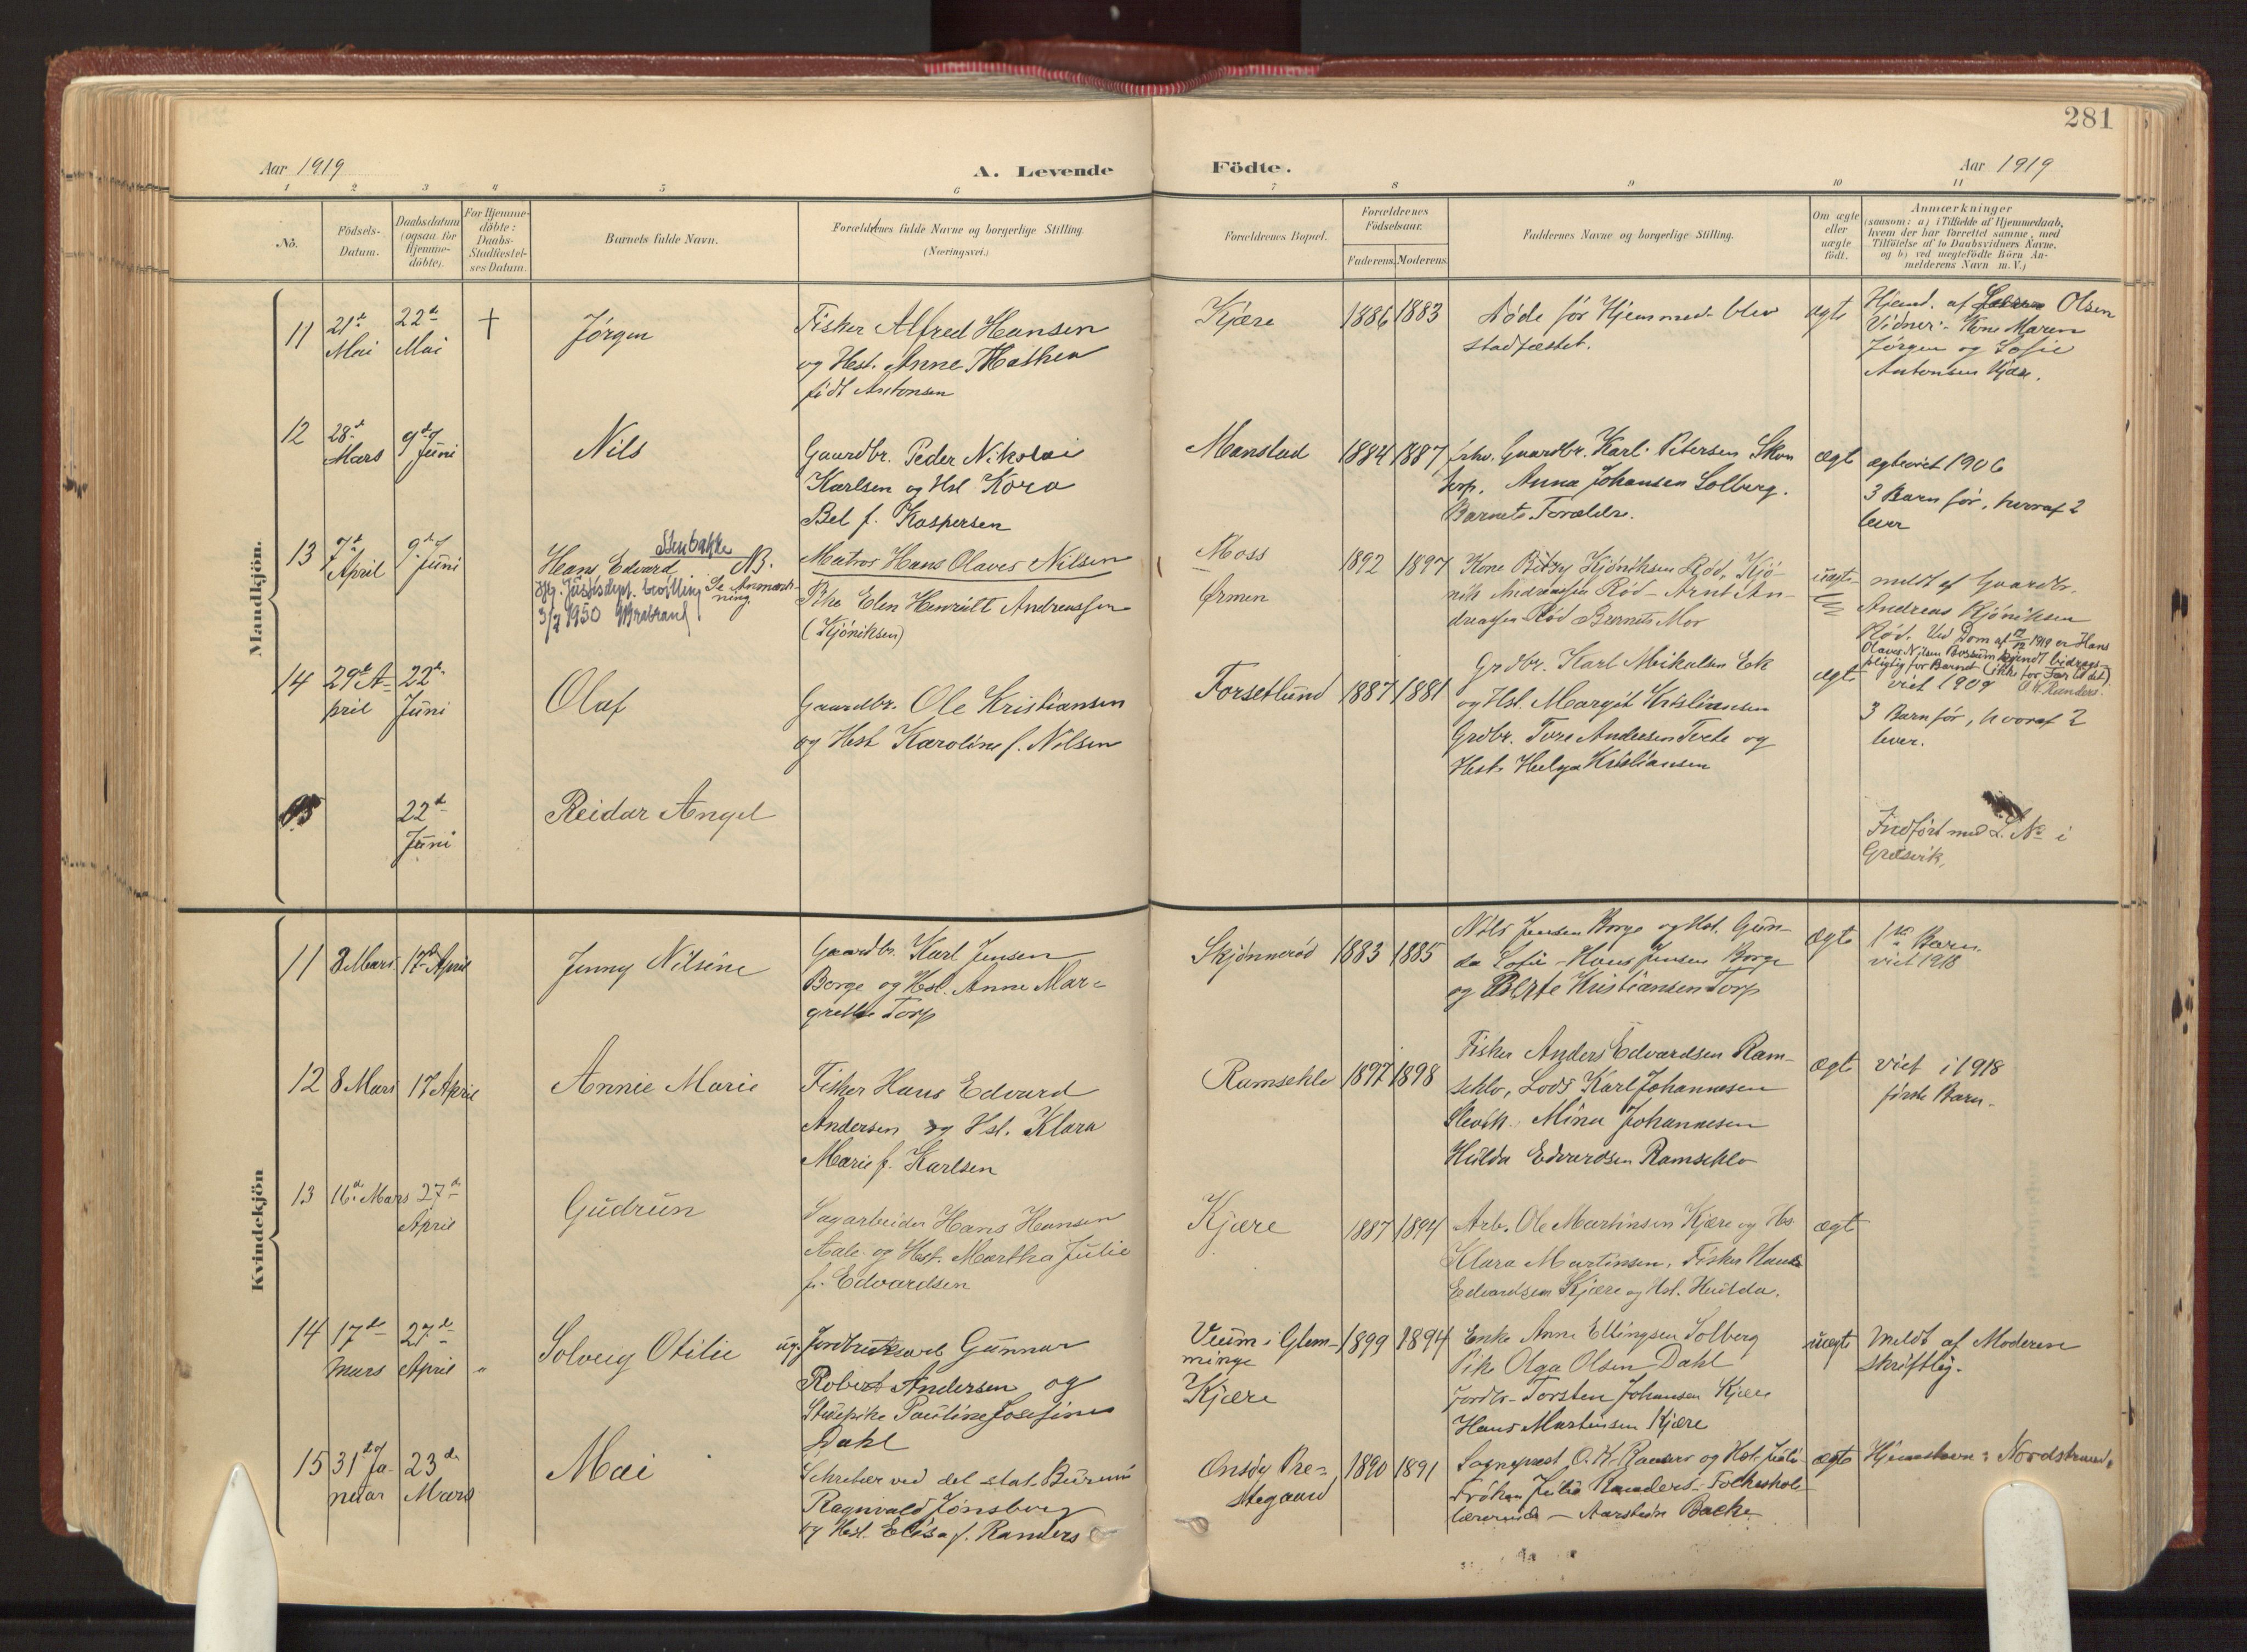 281
Aar 1919
A. Levende
Födte.
Aar 1919
1 2 3 4 5 6 7 8 9 10 11
No.
Födsels-
Datum.
Daabsdatum
(ogsaa for
Hjemme-
döbte).
For Hjemme-
döbte:
Daabs-
Stadfæstel-
ses Datum.
Barnets fulde Navn.
Forældrenes fulde Navne og borgerlige Stilling.
(Næringsvei.)
Forældrenes Bopæl.
Forældrenes
Födselsaar.
Faderens. Moderens.
Faddernes Navne og borgerlige Stilling.
Om ægte
eller
uægte
födt.
Anmærkninger
(saasom: a) i Tilfælde af Hjemmedaab,
hvem der har forrettet samme, med
Tilföielse af to Daabsvidners Navne,
og b) ved uægtefödte Börn An-
melderens Navn m. V.)
Mandkjön.
11
21de
Mai
22de
Mai
†
Jörgen
Fisker Alfred Hansen
og Hst. Anne Mathea
födt Antonsen
Kjære
1886 1883
Döde för Hjemmed. blev
stadfæstet.
ægte
Hjemd. af Olsen
Vidner: Kone Maren
Jörgen og Sofie
Antonsen Kjære.
12
28de
Mars
9de
Juni
Nils
Gaardbr. Peder Nikolai
Karlsen og Hst Kora
Bel f. Kaspersen
Manstad
1884 1887
Gaardbr. Karl Petersen Skon
torp. Anna Johansen Solberg.
Barnets Forældre.
ægte
ægteviet 1906
3 Barn før, hvoraf 2
lever
13
7de
April
9de
Juni
Stenbække
Hans Edvard NB.
Iflg. Justisdept. bevilling Se Anmærk-
ning.
3/7 1950
Matros Hans Olaves Nilsen
Pike Elen Henriette Andreassen
(Kjöniksen)
Moss
Ørmen
1892 1897
Kone Kjöniksen Rød, Kjö-
nik Andreassen Rød - Arnt An-
dreassen Rød Barnets Mor
uægte
meldt af Gaardbr.
Andreas Kjöniksen
Rød. Ved Dom af 12/12 1919 er Hans
Olaves Nilsen kjendt bidrags-
pligtig for Barnet (ikke for Far til det).
O.K. Randers.
14
29de A-
pril
22de
Juni
Olaf
Gaardbr. Ole Kristiansen
og Hst Karoline f. Nilsen
Forsetlund
1887 1881
Grdbr. Karl Mikalsen Ek
og Hst. Margit Kristiansen
Grdbr. Tore Andersen Tvete og
Hst. Helga Kristiansen
ægte
viet 1909
3 Barn før, hvoraf 2
lever.
22de
Juni
Reidar Angel
Indført med L. No i
Gressvik.
Kvindekjön
11
8 Mars
17de April
Jenny Nilsine
Gaardbr. Karl Jensen
Borge og Hst. Anne Mar-
grethe Torp
Skjønnerød
1883 1885
Nils Jensen Borge og Hst. Gun-
da Sofie - Hans Jensen Borge
og Berte Kristiansen Torp
ægte
1ste Barn
viet 1918
12
8 Mars
17 April
Annie Marie
Fisker Hans Edvard
Andersen og Hst. Klara
Marie f. Karlsen
Ramseklo
1897 1898
Fisker Anders Edvardsen Ram-
seklo, Lods Karl Johannesen
Slevik. Mina Johannesen
Hulda Edvardsen Ramseklo
ægte
viet i 1918
første Barn.
13
16de Mars
27de
April
Gudrun
Sagarbeider Hans Hansen
Aale og Hst. Martha Julie
f. Edvardsen
Kjære
1887 1894
Arb. Ole Martinsen Kjære og Hs.
Klara Martinsen, Fisker Hans
Edvardsen Kjære og Hst. Hulda.
ægte
14
17de
Mars
27de
April
"
Solveig Otilie
ug. Jordbruksarb Gunnar
Robert Andersen og
Stuepike Pauline Josefine
Dahl
Veum i Glem-
minge
Kjære
1899 1894
Enke Anne Ellingsen Solberg
Pike Olga Olsen Dahl
Jordbr. Torsten Johansen Kjære
Hans Martinsen Kjære
uægte
Meldt af Moderen
skriftlig.
15
31te Ja-
nuar
23de
Mars
Mai
Sekretær ved det stat. Bureau
Ragnvald Jønsberg
og Hst. Elisa f. Randers
Onsøy Pre-
stegaard
1890 1891
Sogneprest O.K. Randers og Hst. Julie
Frøken Julia Randers - Folkeskole-
lærerinde - Backe
ægte
Hjemstavn: Nordstrand.